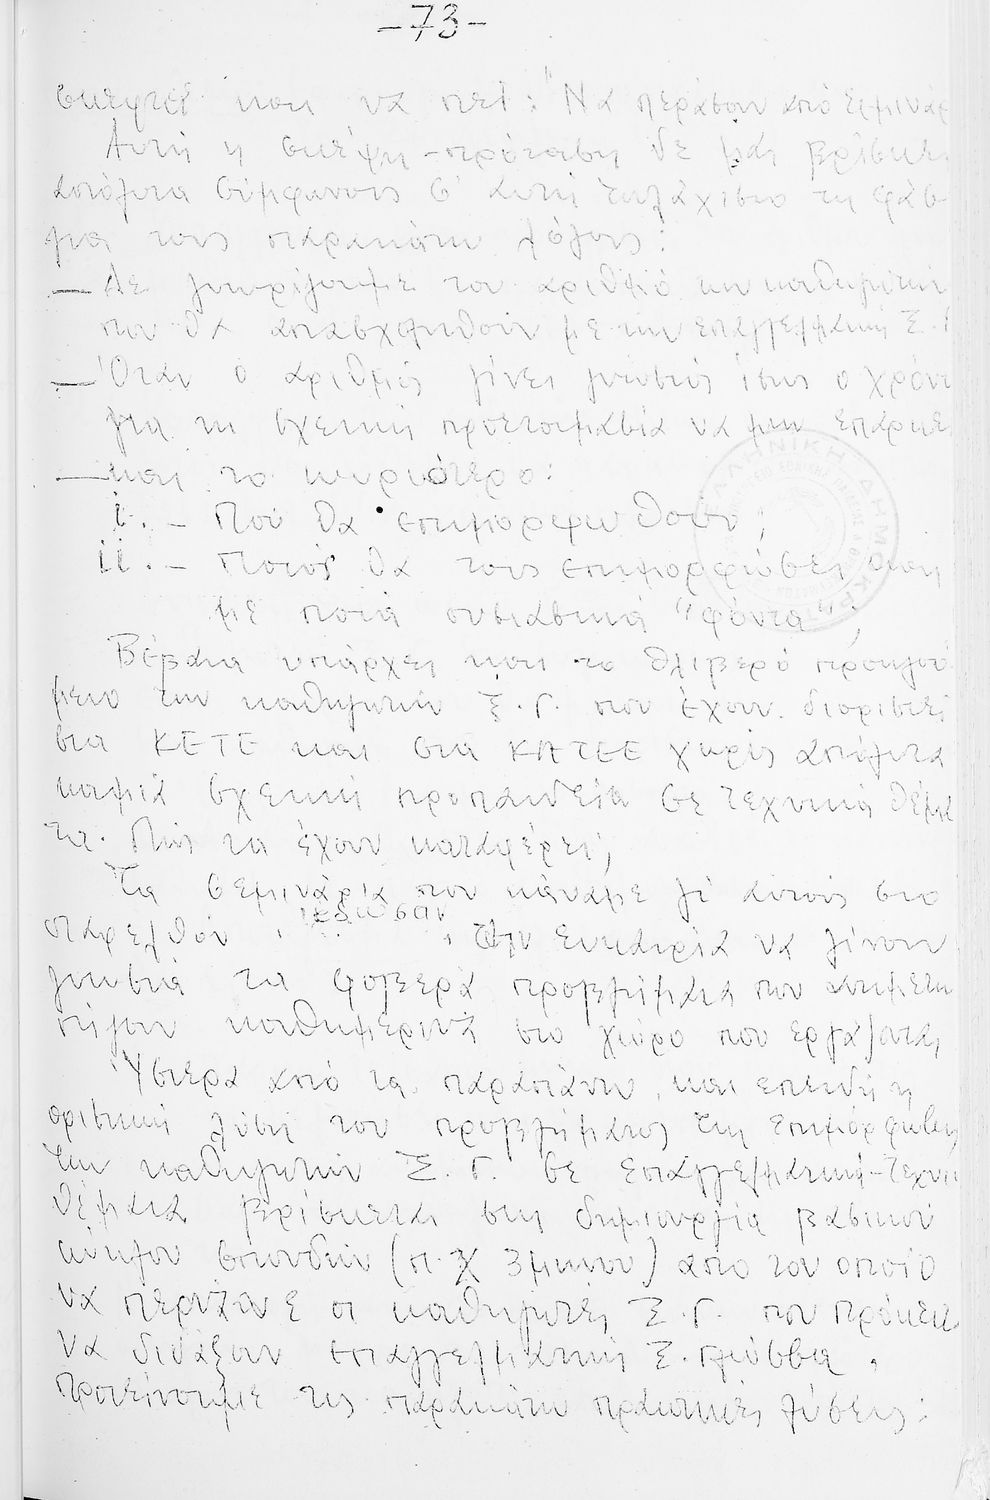 -73-
σκεφτεί και να πει: "Να περάσουν από σεμινάρ
Αυτή η σκέψη - πρόταση δε μας βρίσκει
απόλυτα σύμφωνους σ' αυτή τουλάχιστο τη φάσ-
για τους παρακάτω λόγους:
— Δε γνωρίζουμε τον αριθμό των καθηγητών
που θα απασχοληθούν με την επαγγελματική Ξ. Γ
— Όταν ο αριθμός γίνει γνωστός ίσως ο χρόνο
για τη σχετική προετοιμασία να μην επαρκεί
— και το κυριότερο:
i. - Πού θα επιμορφωθούν;
ii. - Ποιος θα τους επιμορφώσει και
με ποιά ουσιαστικά "φόντα";
Βέβαια υπάρχει και το θλιβερό προηγού
μενο των καθηγητών Ξ. Γ. που έχουν διοριστεί
στα ΚΕΤΕ και στα ΚΑΤΕΕ χωρίς απόλυτα
καμιά σχετική προπαιδεία σε τεχνικά θέμα
τα. Πώς τα έχουν καταφέρει;
Τα σεμινάρια που κάναμε γι' αυτούς στο
παρελθόν έδωσαν την ευκαιρία να γίνουν
γνωστά τα φοβερά προβλήματα που αντιμετω
πίζουν καθημερινά στο χώρο που εργάζονται
Ύστερα από τα παραπάνω, και επειδή η
οριστική λύση του προβλήματος της επιμόρφωσης
των καθηγητών Ξ. Γ. σε επαγγελματικά-τεχνικ
θέματα βρίσκεται στη δημιουργία βασικού
κύκλου σπουδών (π.χ 3μηνου) από τον οποίο
να περνάνε οι καθηγητές Ξ. Γ. που πρόκειτ
να διδάξουν επαγγελματική Ξ. Γλώσσα,
προτείνουμε τις παρακάτω πρακτικές λύσεις:
ΕΛΛΗΝΙΚΗ ΔΗΜΟΚΡΑΤΙΑ